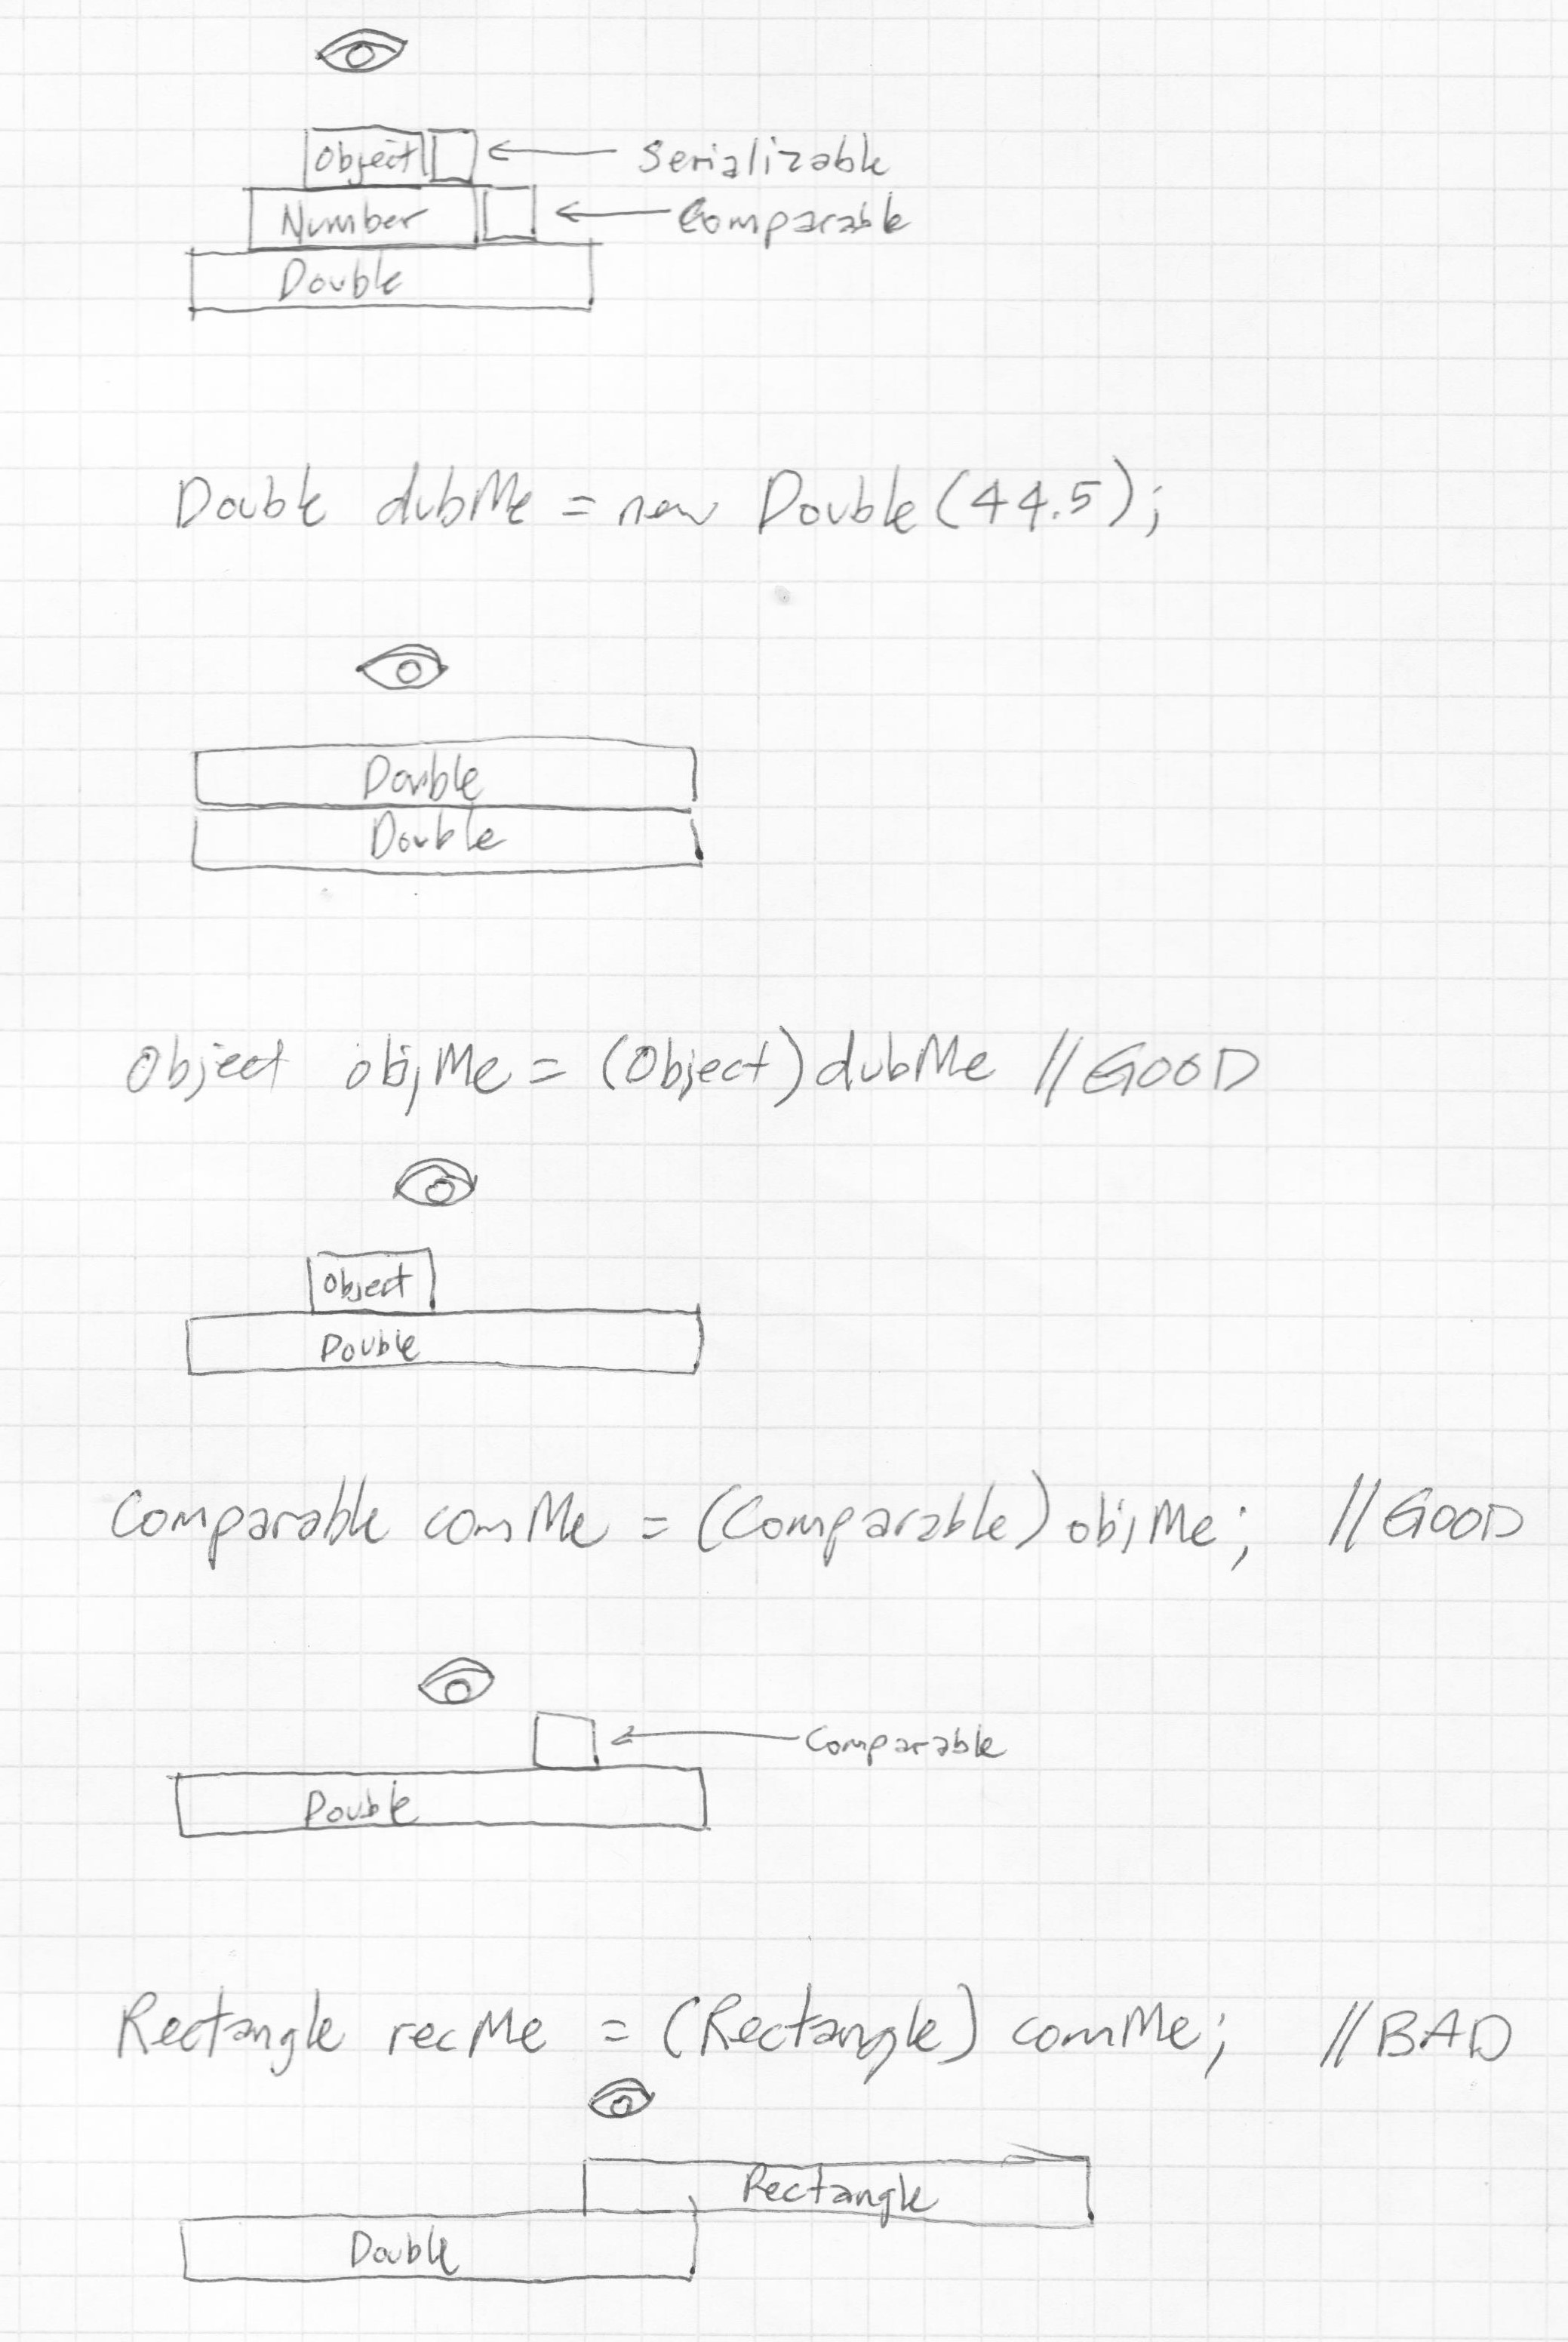 Object ← Serializable
Number ← Comparable
Double
Double dubMe = new Double(44.5);
Double
Double
Object objMe = (Object)dubMe //GOOD
Object
Double
Comparable comMe = (Comparable)objMe; //GOOD
← Comparable
Double
Rectangle recMe = (Rectangle) comMe; //BAD
Rectangle
Double